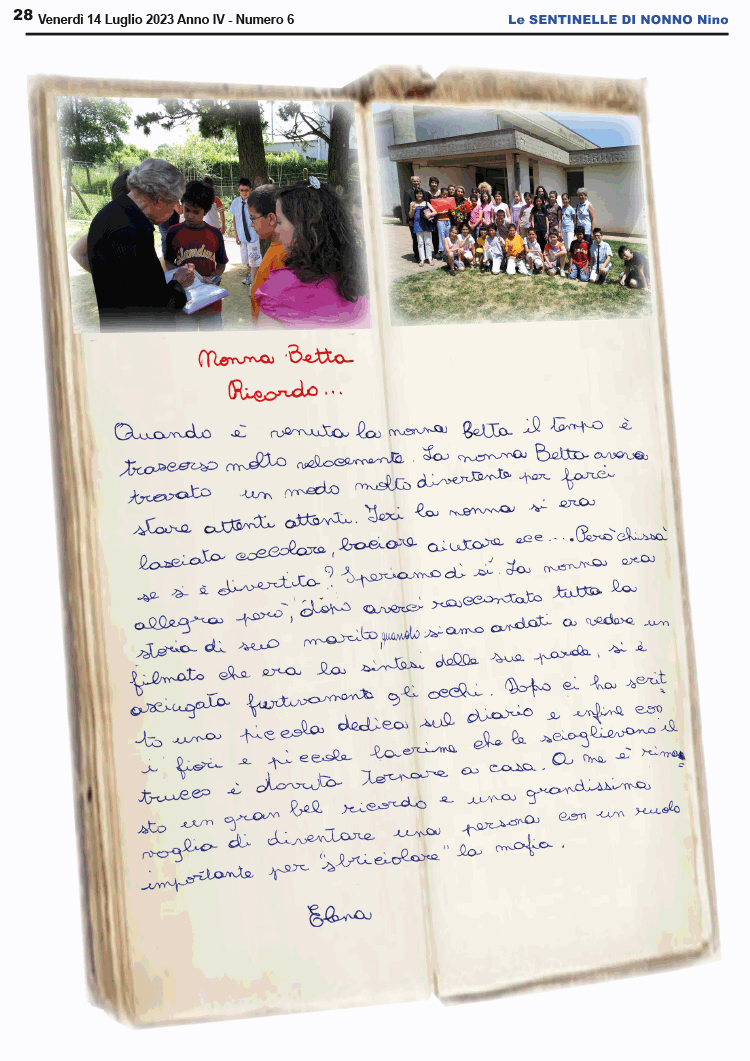 28 Venerdì 14 Luglio 2023 Anno IV - Numero 6
Le SENTINELLE DI NONNO Nino
Nonna Betta
Ricordo...
Quando è venuta la nonna Betta il tempo è
trascorso molto velocemente. La nonna Betta aveva
trovato un modo molto divertente per farci
stare attenti attenti. Ieri la nonna si era
lasciata coccolare, baciare aiutare ecc.... Però chissà
se si è divertita? Speriamo di sì. La nonna era
allegra però, dopo averci raccontato tutta la
storia di suo marito, quando siamo andati a vedere un
filmato che era la sintesi delle sue parole, si è
asciugata furtivamente gli occhi. Dopo ci ha scrit
to una piccola dedica sul diario e infine con
i fiori e piccole lacrime che le scioglievano il
trucco è dovuta tornare a casa. A me è rima
sto un gran bel ricordo e una grandissima
voglia di diventare una persona con un ruolo
importante per "sbriciolare" la mafia.
Elena